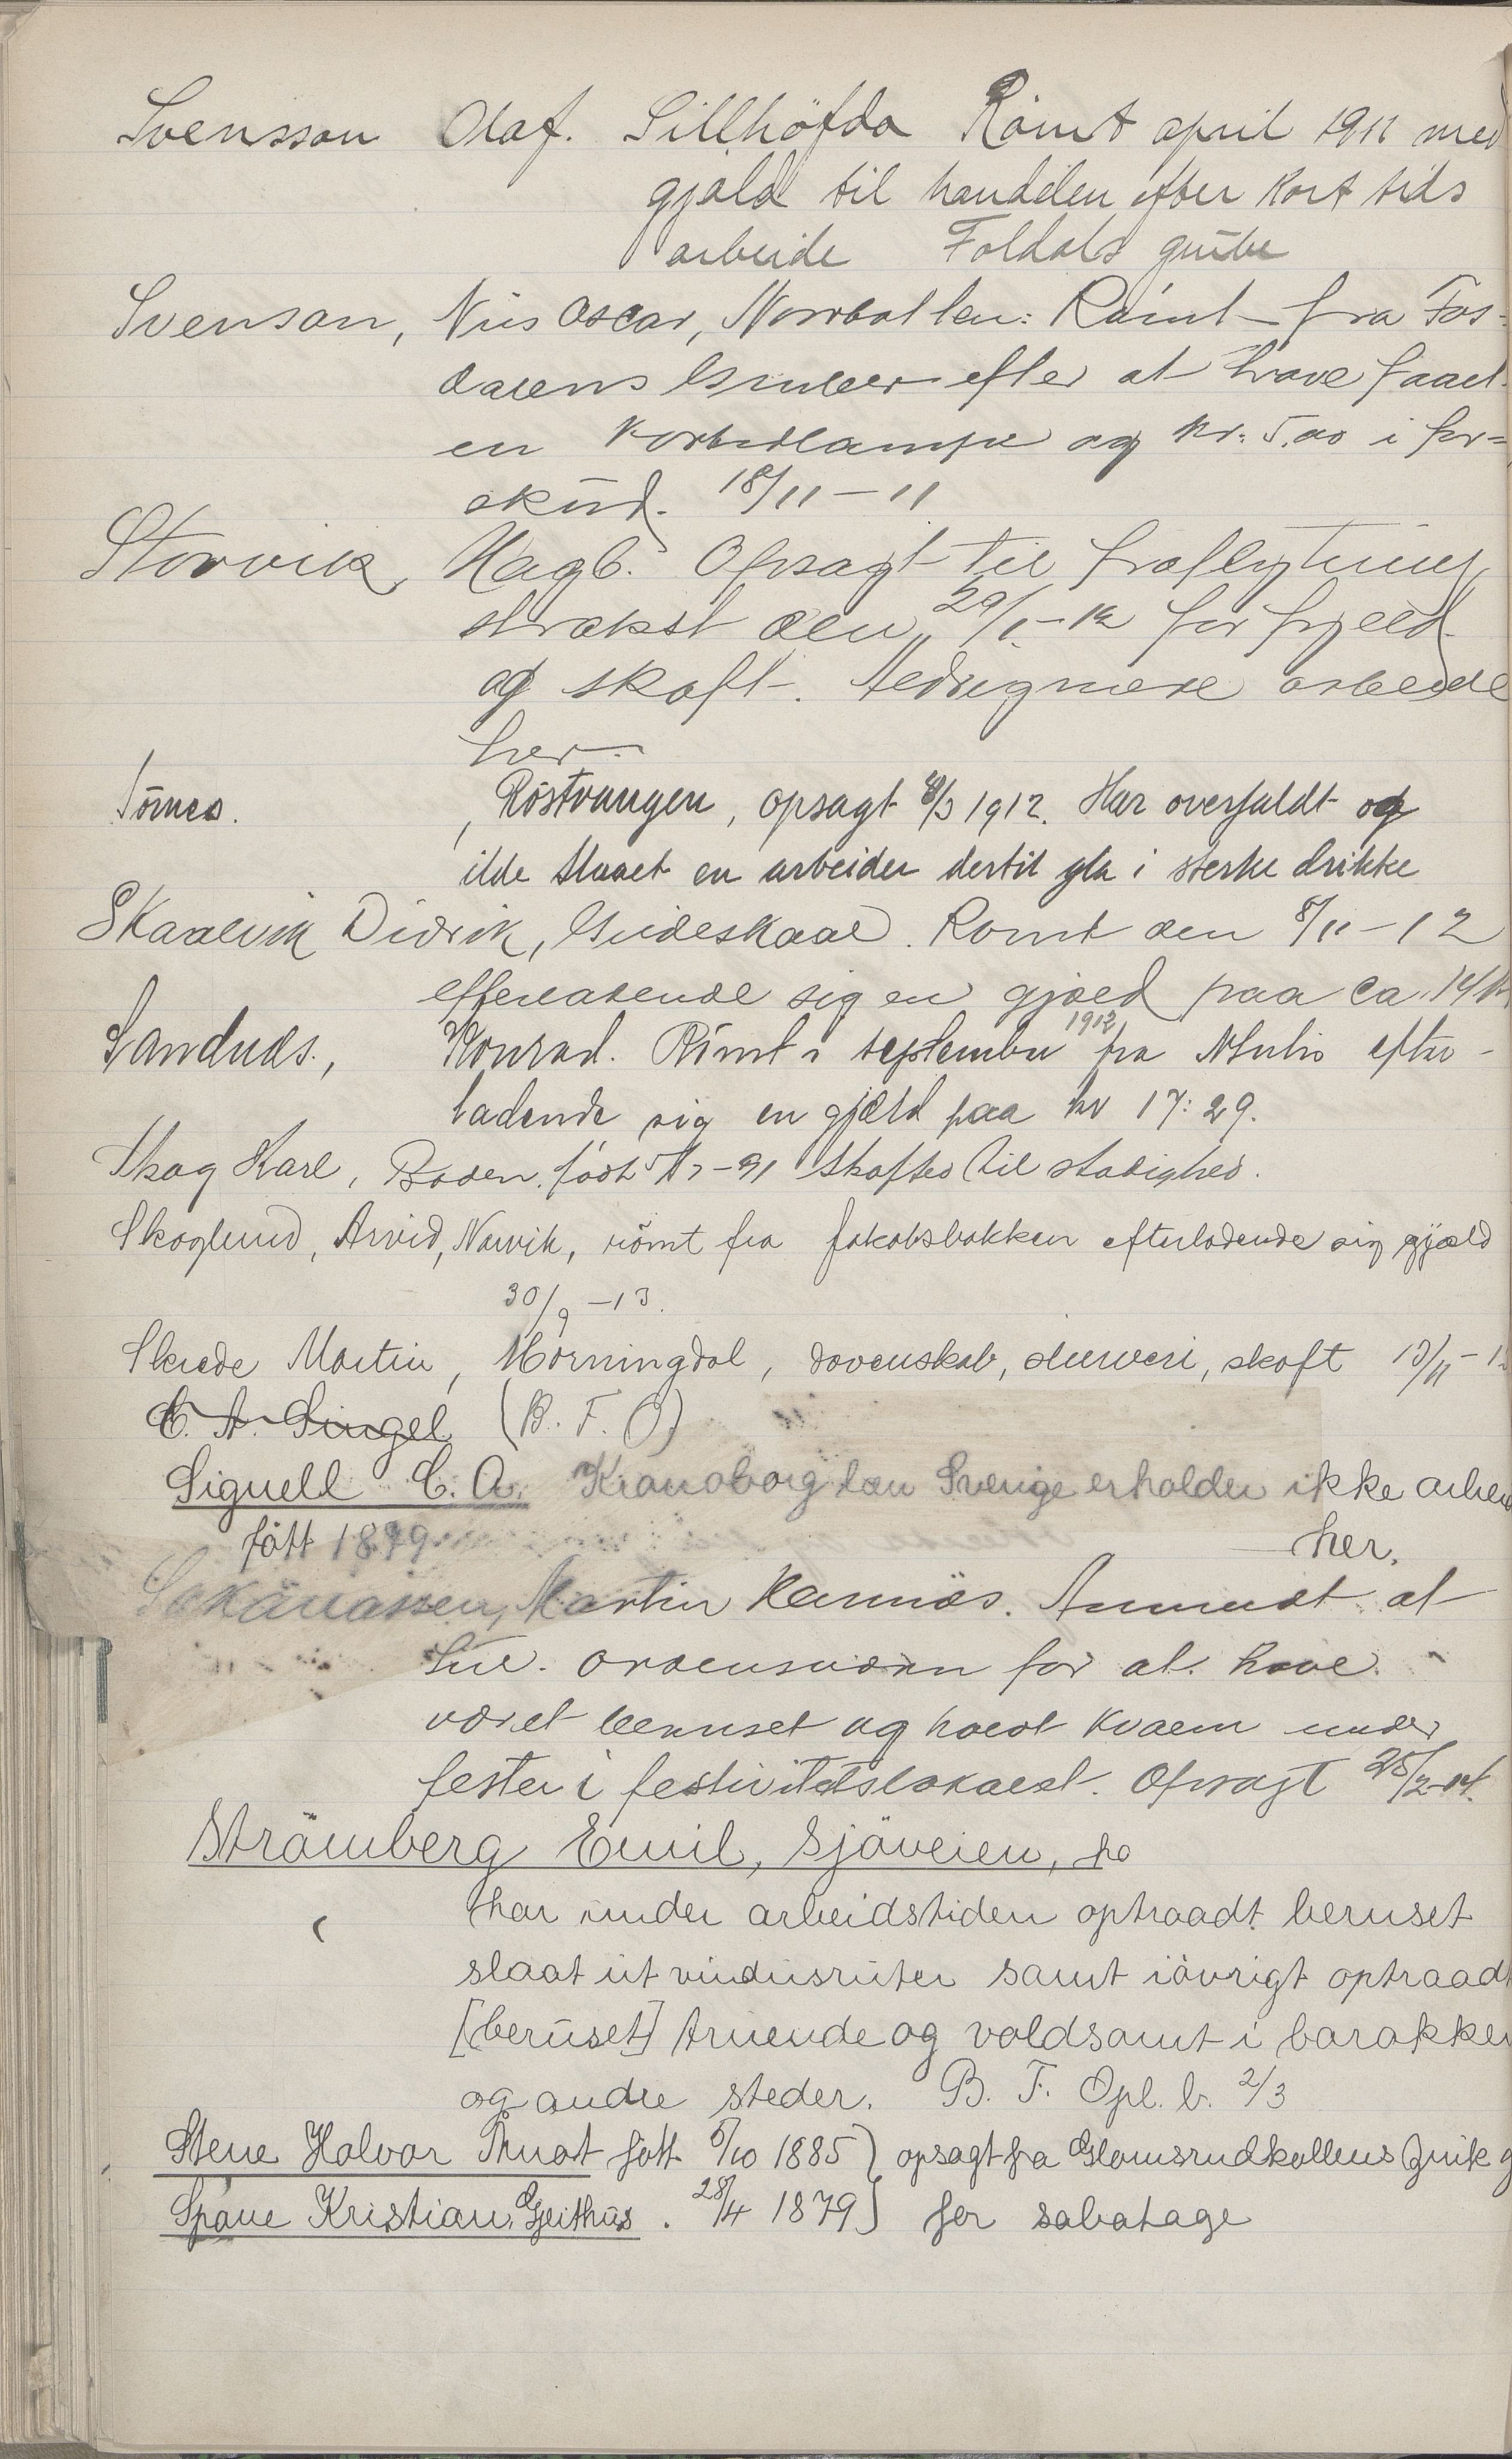 Svensson Olaf. Sillhöfda Römt april 1911 med
gjæld til handelen efter kort tids
arbeide Foldals grube
Svenson, Nils Oscar, Norrbotten: Römt fra Fos-
dalens Gruber efter at have faaet
en karbidlampe og kr. 5.00 i for-
skud. 18/11-11
Storvik, Hagb. Opsagt til fraflytning
strakst den 29/1-12 for gjæld
og skoft. Aldrig mere arbeide
her.
Sörnes. , Röstvangen, opsagt 8/3 1912. Har overfaldt og
ilde slaaet en arbeider dertil gla i sterke drikke
Skaalvik Didrik, Gildeskaal. Römt den 8/11-12
efterladende sig en gjæld paa ca. 14 kr
Sandnds., Konrad. Römt i september 1912 fra efter-
ladende sig en gjæld paa kr 17:29.
Skog Karl, Boden. födt -91 Skoftes til stadighed.
Skoglund, Arvid, Narvik, römt fra Jakobsbakken efterladende sig gjæld
30/9-13.
Skrede Martin, Horningdal, dovenskab, slurveri, skoft 13/11-1
C. A. Singel (B. F. O)
Signell C. A. Kronoborg län Sverige erholder ikke arbei
fött 1879 her.
Sakariassen, Martin Hemnes. Anmeldt af
Sul. ordensværn for at have
været beruset og holdt kvalm under
fester i festivitetslokalet. Opsagt 25/2-14.
Strömberg Emil, Sjöveien,
har under arbeidstiden optraadt beruset
slaat ut vindusruter samt iövrigt optraadt
[beruset] truende og voldsomt i barakker
og andre steder. B. F. Opl. b. 2/3
Stene Halvor Thuat fött 5/10 1885) opsagt fra Glomsrudkollens Zink g
Spone Kristian, Geithus. 28/4 1879) for sabotage